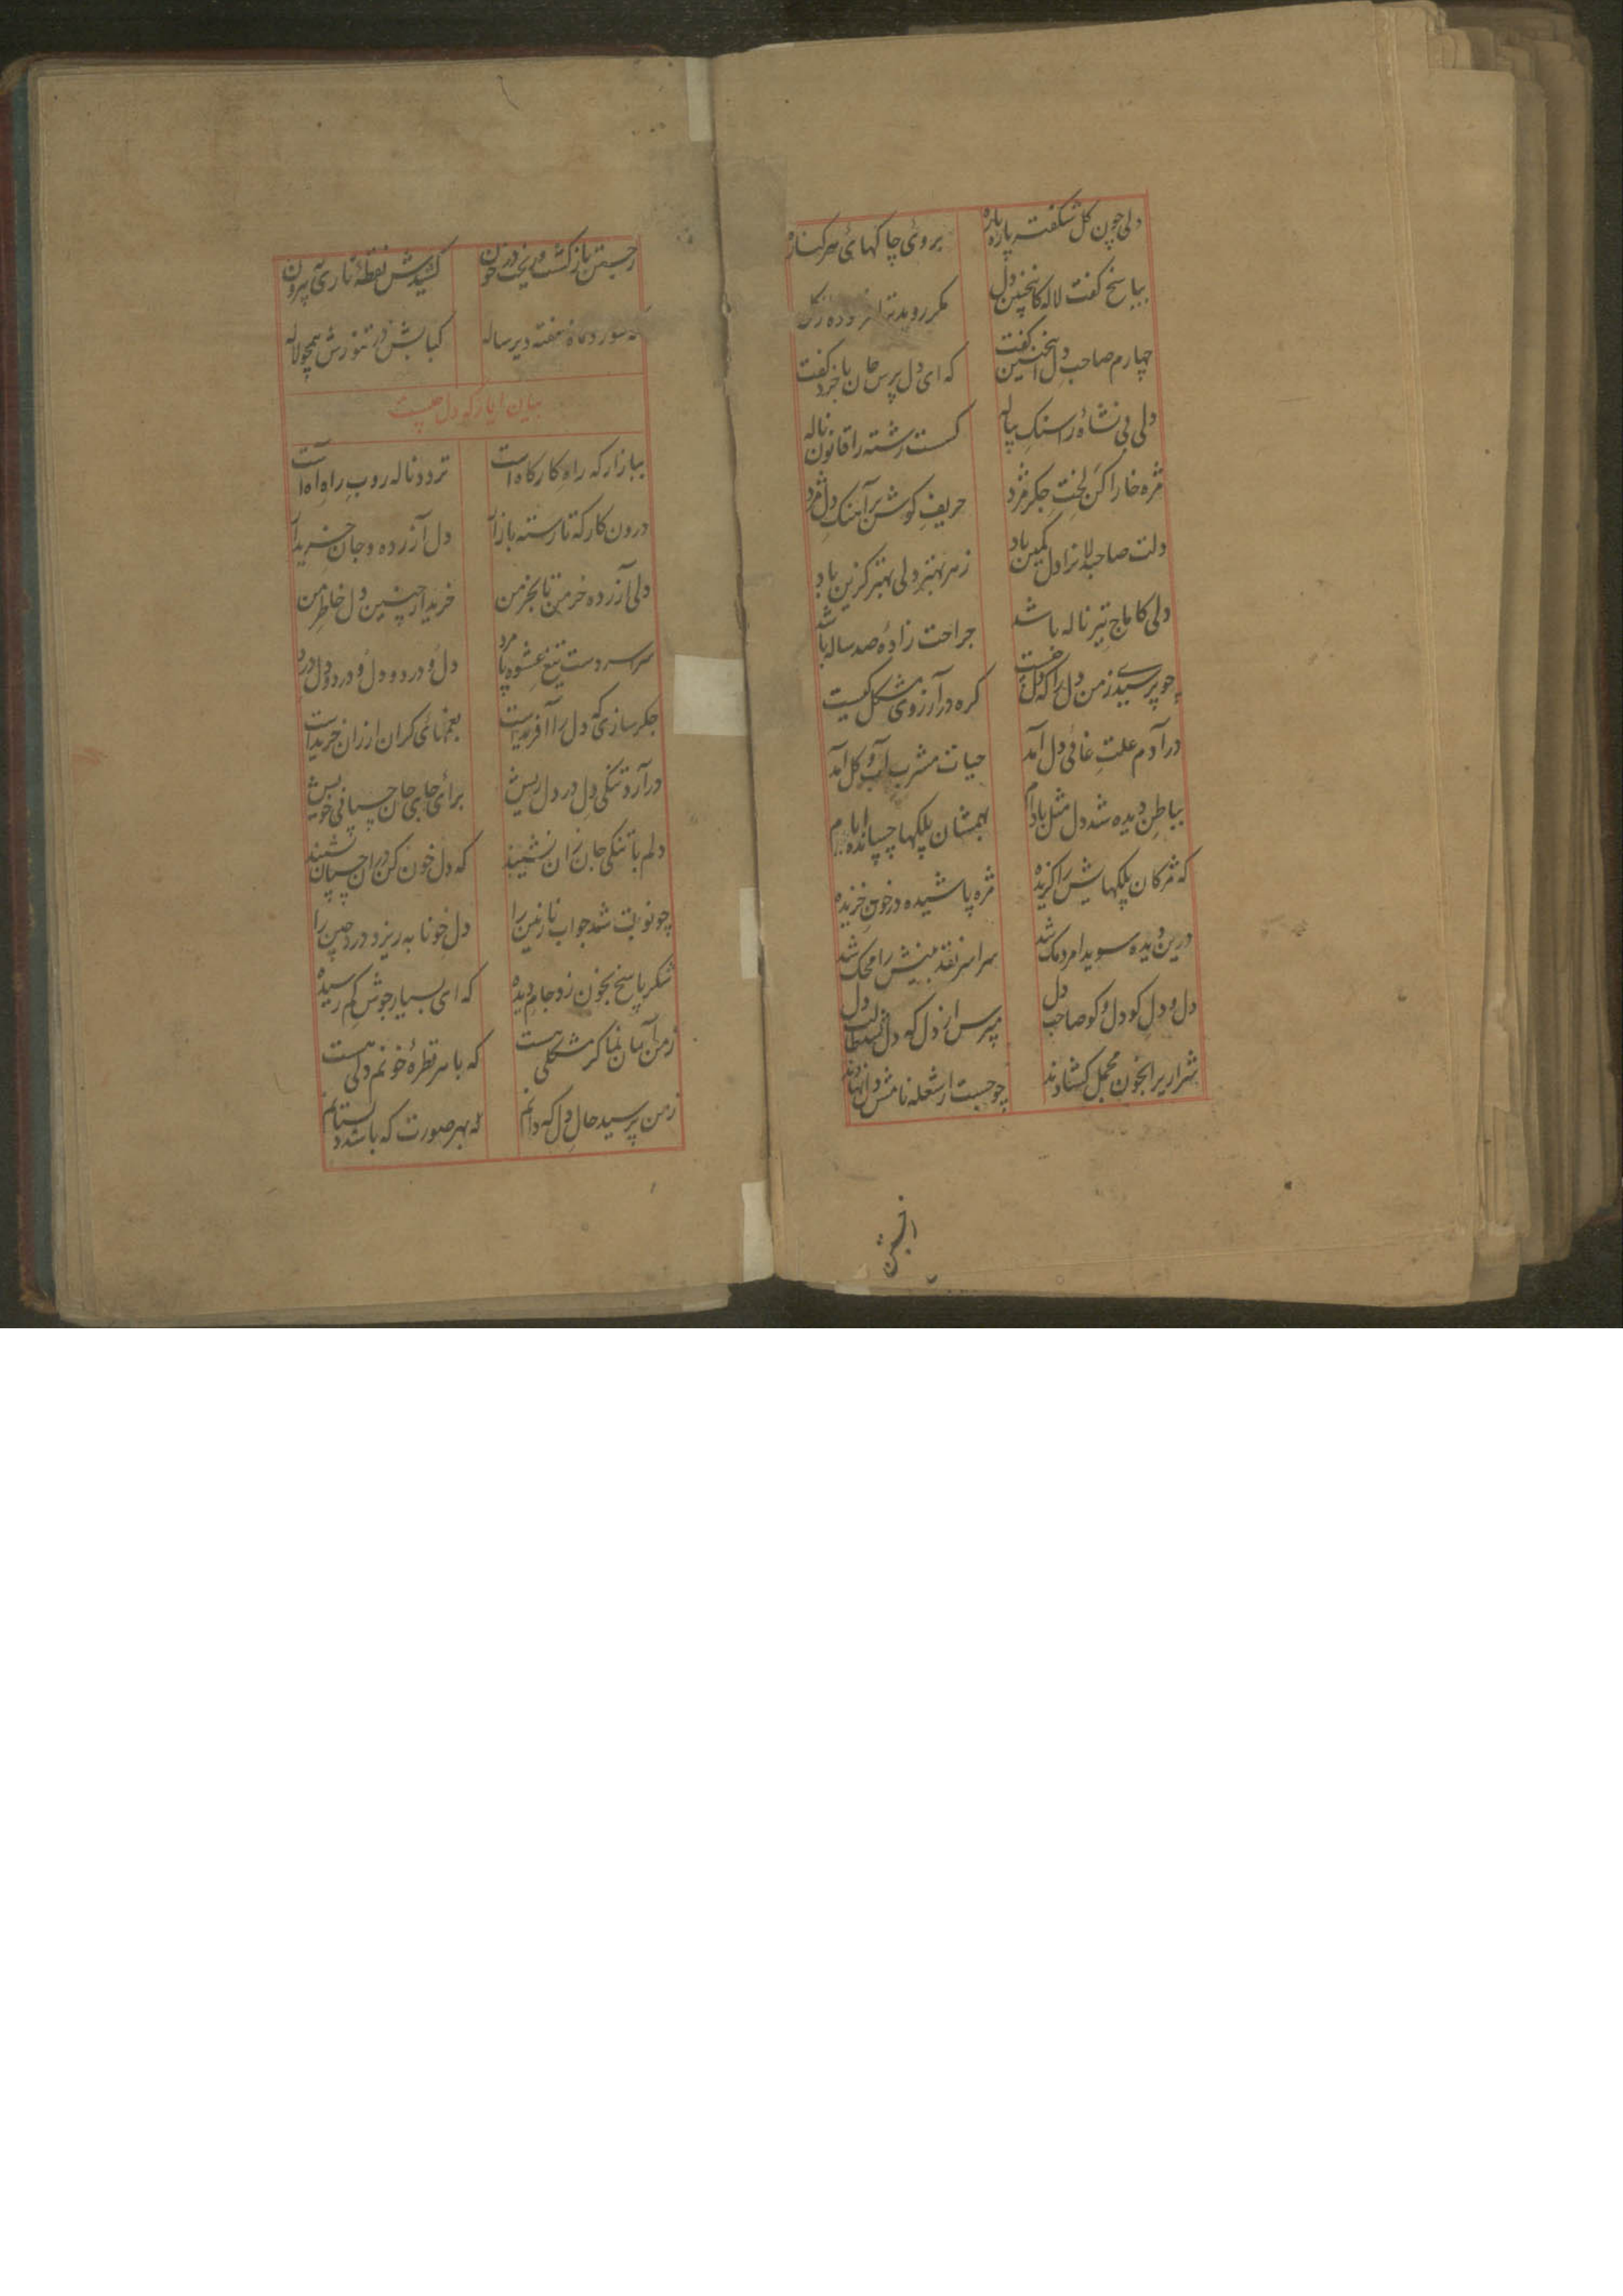 دلی چون کل شکفته پاره پاره بروئی چاکهائی هر کناره
بپاسخ کفت لاله کاینچنین دل مکر روید
چهارم صاحب دل انخستین کفت که ای دل پرس جان با خرد کفت
دلی بی نشاه را سنک پیاله کست رشته را قانون ناله
مژه خارا کن لخت جکر مژد حریف کوشش آهنک دل مژد
دلت صاحبدلانرا دل کمین باد زهر بهتر دلی بهتر کزین باد
دلی کاماج تیر ناله باشد جراحت زادهٔ صد ساله باشد
چو پرسیدے زمن دل را که دل چیست کره در آرزوی مشکل کیست
در آدم علت غائی دل آمد حیات مشرب آب و کل آمد
بباطن دیده شد دل مثل بادام بهمشان پلکها چسپانده ایام
که مژکان پلکهایش را کزیده مژه پاشیده در خون خزیده
درین دیده سویدا مردمک شد سراسر نقد بینش را محک شد
دل و دل کو دل و کو صاحب دل مپرس از دل که دل
شراریرا بخون محمل کشادند چو جست از شعله نامش دل نهادند
ز جستن باز کشت و ریخت در خون کشیدش نقطهٔ ناری به بیرون
کبابش در تنورش همچو لاله
بیان ایاز که دل چیست
ببازار که راه کارکاه است تردد ناله روب راه آه است
درون کارکه تا رسته بازار دل آزرده و جان خریدار
دلی آزرده خرمن تا بخرمن خریدار چنین دل خاطر من
سراسر دست تیغ عشوه پا مرد دل و درد و دل و درد و دل و درد
جکر سازی که دل را آفریدست بغمهائی کران ارزان خریدست
در آرد تنکی دل در دل ریش برائی جای جان چسپانی خویش
دلم با تنکی جان زان نشیند که دل خون کن دران چسپان نشیند
چو نوبت شد جواب نازنین را دل خونابه ریز درد چین را
شکر پاسخ بخون زد جام دیده که ای بسیار جوش کم رسیده
زمن آسان نما کر مشکلی هست که با هر قطرهٔ خونم دلی هست
زمن پرسید حال دل که دانم که بهر صورت که باشد